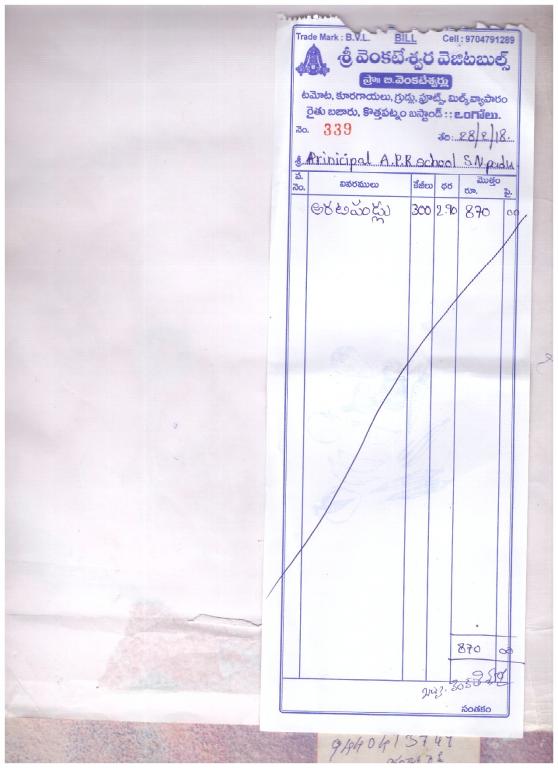 Trade Mark : B.V.L. BILL Cell : 9704791289
శ్రీ వెంకటేశ్వర వెజిటబుల్స్
ప్రొః బి.వెంకటేశ్వర్లు
టమోట, కూరగాయలు, గ్రుడ్లు, ఫ్రూట్స్, మిల్క్ వ్యాపారం
రైతు బజారు, కొత్తపట్నం బస్టాండ్ : : ఒంగోలు.
నెం. 339 తేది: 28/2/18.
శ్రీ Prinicipal A.P.R school S.N.padu
వ. నెం. వివరములు కేజీలు ధర మొత్తం రూ. పై.
అరటిపండ్లు 300 2.90 870 00
870 00
సంతకం